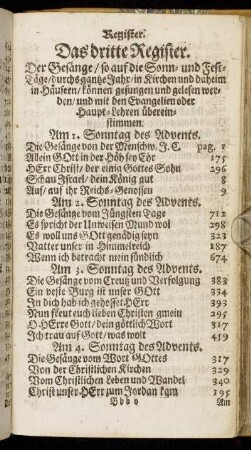 Register.
Das dritte Register.
Der Gesänge / so auf die Sonn- und Fest-
Täge / durchs gantze Jahr / in Kirchen und daheim
in Häusern / können gesungen und gelesen wer-
den / und mit den Evangelien oder
Haupt-Lehren überein-
stimmen.
Am 1. Sonntag des Advents.
Die Gesänge von der Menschw. J. C. pag. 1
Allein GOtt in der Höh sey Ehr 175
HErr Christ / der einig Gottes Sohn 296
Schau Israel / dein König gut 8
Auf / auf ihr Reichs-Genossen 9
Am 2. Sonntag des Advents.
Die Gesänge vom Jüngsten Tage 712
Es spricht der Unweisen Mund wol 298
Es woll uns GOtt genädig seyn 323
Vatter unser in Himmelreich 187
Wenn ich betracht mein sündlich 674
Am 3. Sonntag des Advents.
Die Gesänge vom Creutz und Verfolgung 383
Ein veste Burg ist unser GOtt 334
In dich hab ich gehoffet HErr 393
Nun freut euch lieben Christen gmein 295
O HErre Gott / dein göttlich Wort 317
Ich trau auf Gott / was wolt 459
Am 4. Sonntag des Advents.
Die Gesänge vom Wort GOttes 317
Von der Christlichen Kirchen 329
Vom Christlichen Leben und Wandel 340
Christ unser HErr zum Jordan kam 195
Am